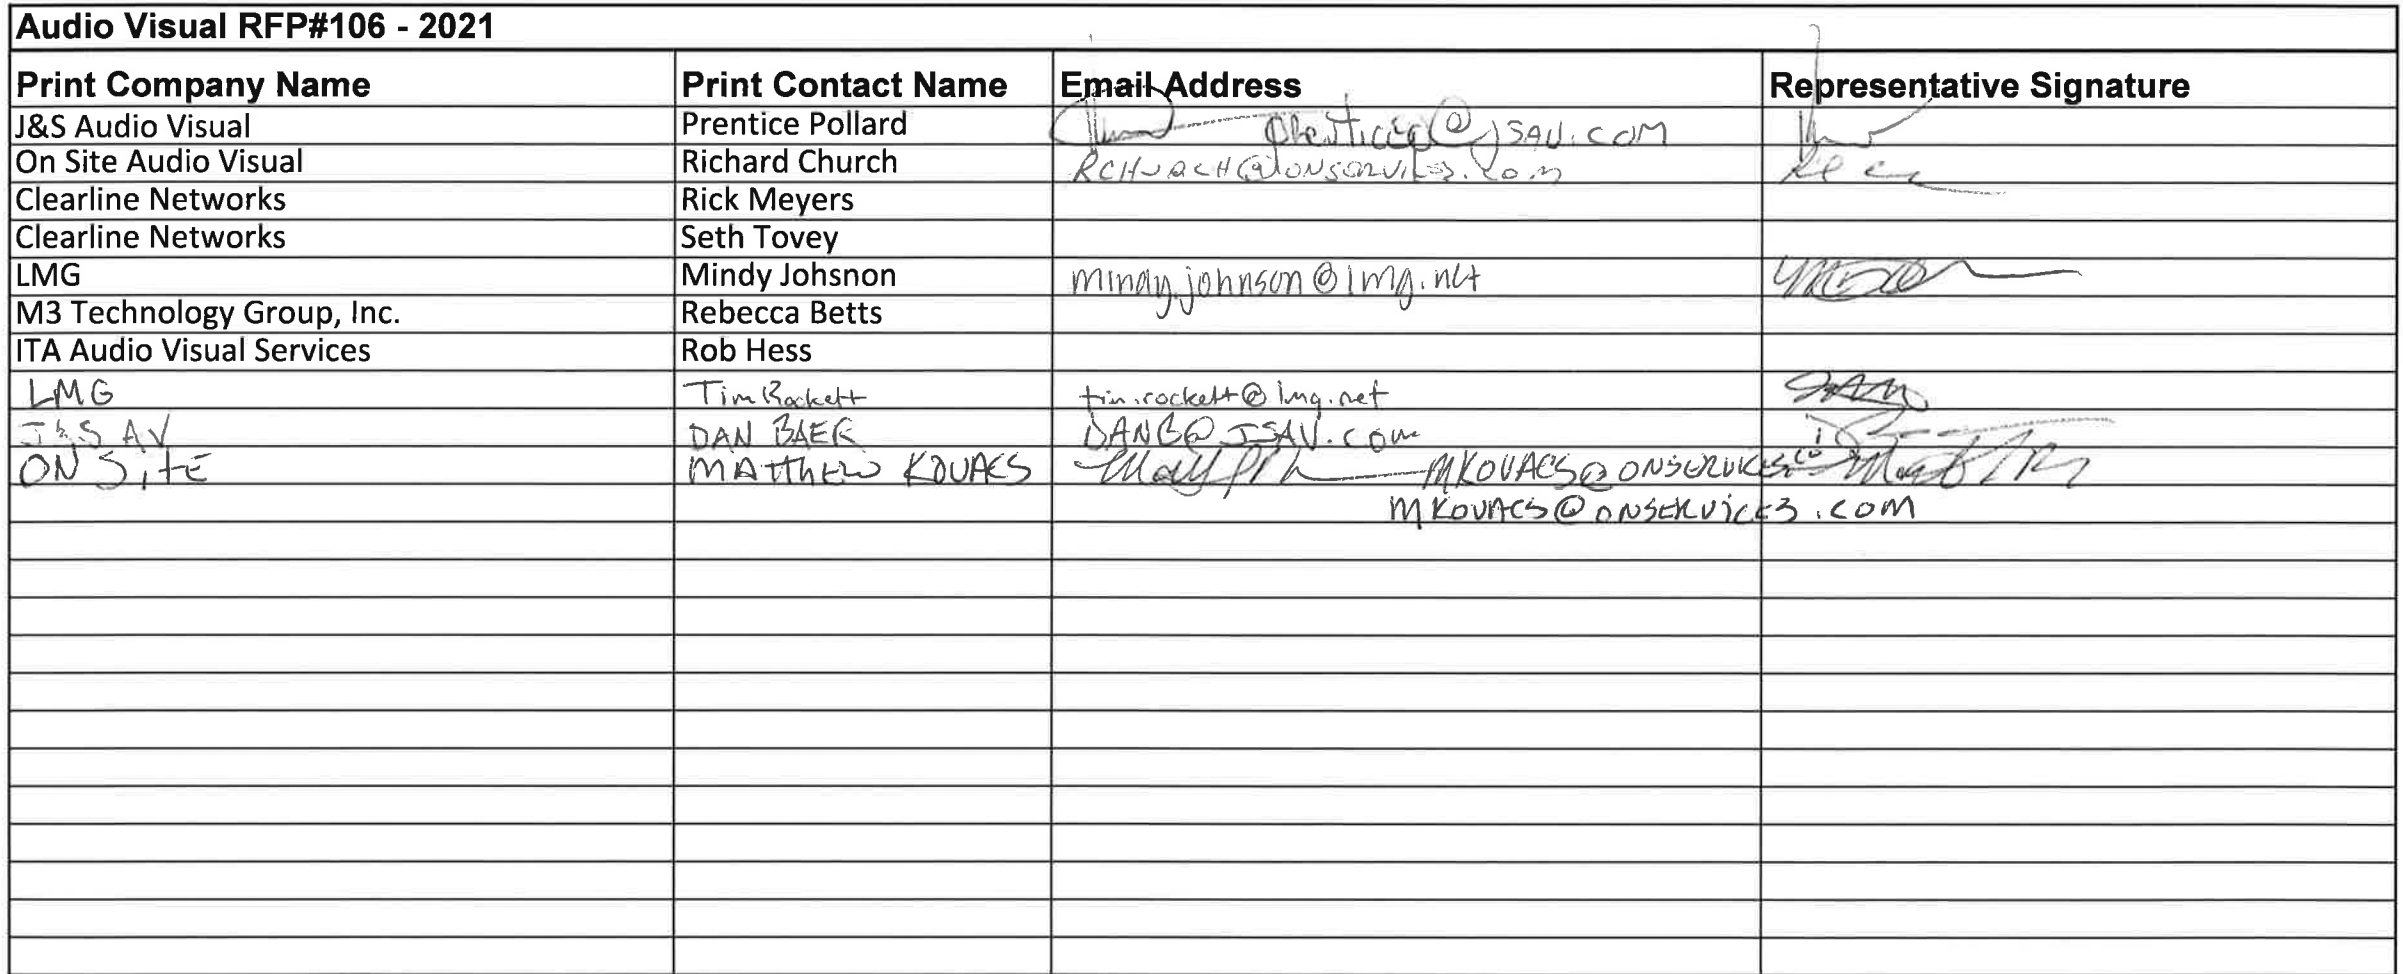 Audio Visual RFP#106 - 2021
Print Company Name Print Contact Name Email Address Representative Signature
J&S Audio Visual Prentice Pollard
On Site Audio Visual Richard Church
Clearline Networks Rick Meyers
Clearline Networks Seth Tovey
LMG Mindy Johsnon mindy.johnson@lmg.net
M3 Technology Group, Inc. Rebecca Betts
ITA Audio Visual Services Rob Hess
LMG Tim Rockett tim.rockett@lmg.net
J&S AV DAN BAER DANB@JSAV.COM
ON SITE MATTHEW KOVACS MKOVACS@ONSERVICES.CO
MKOVACS@ONSERVICES.COM